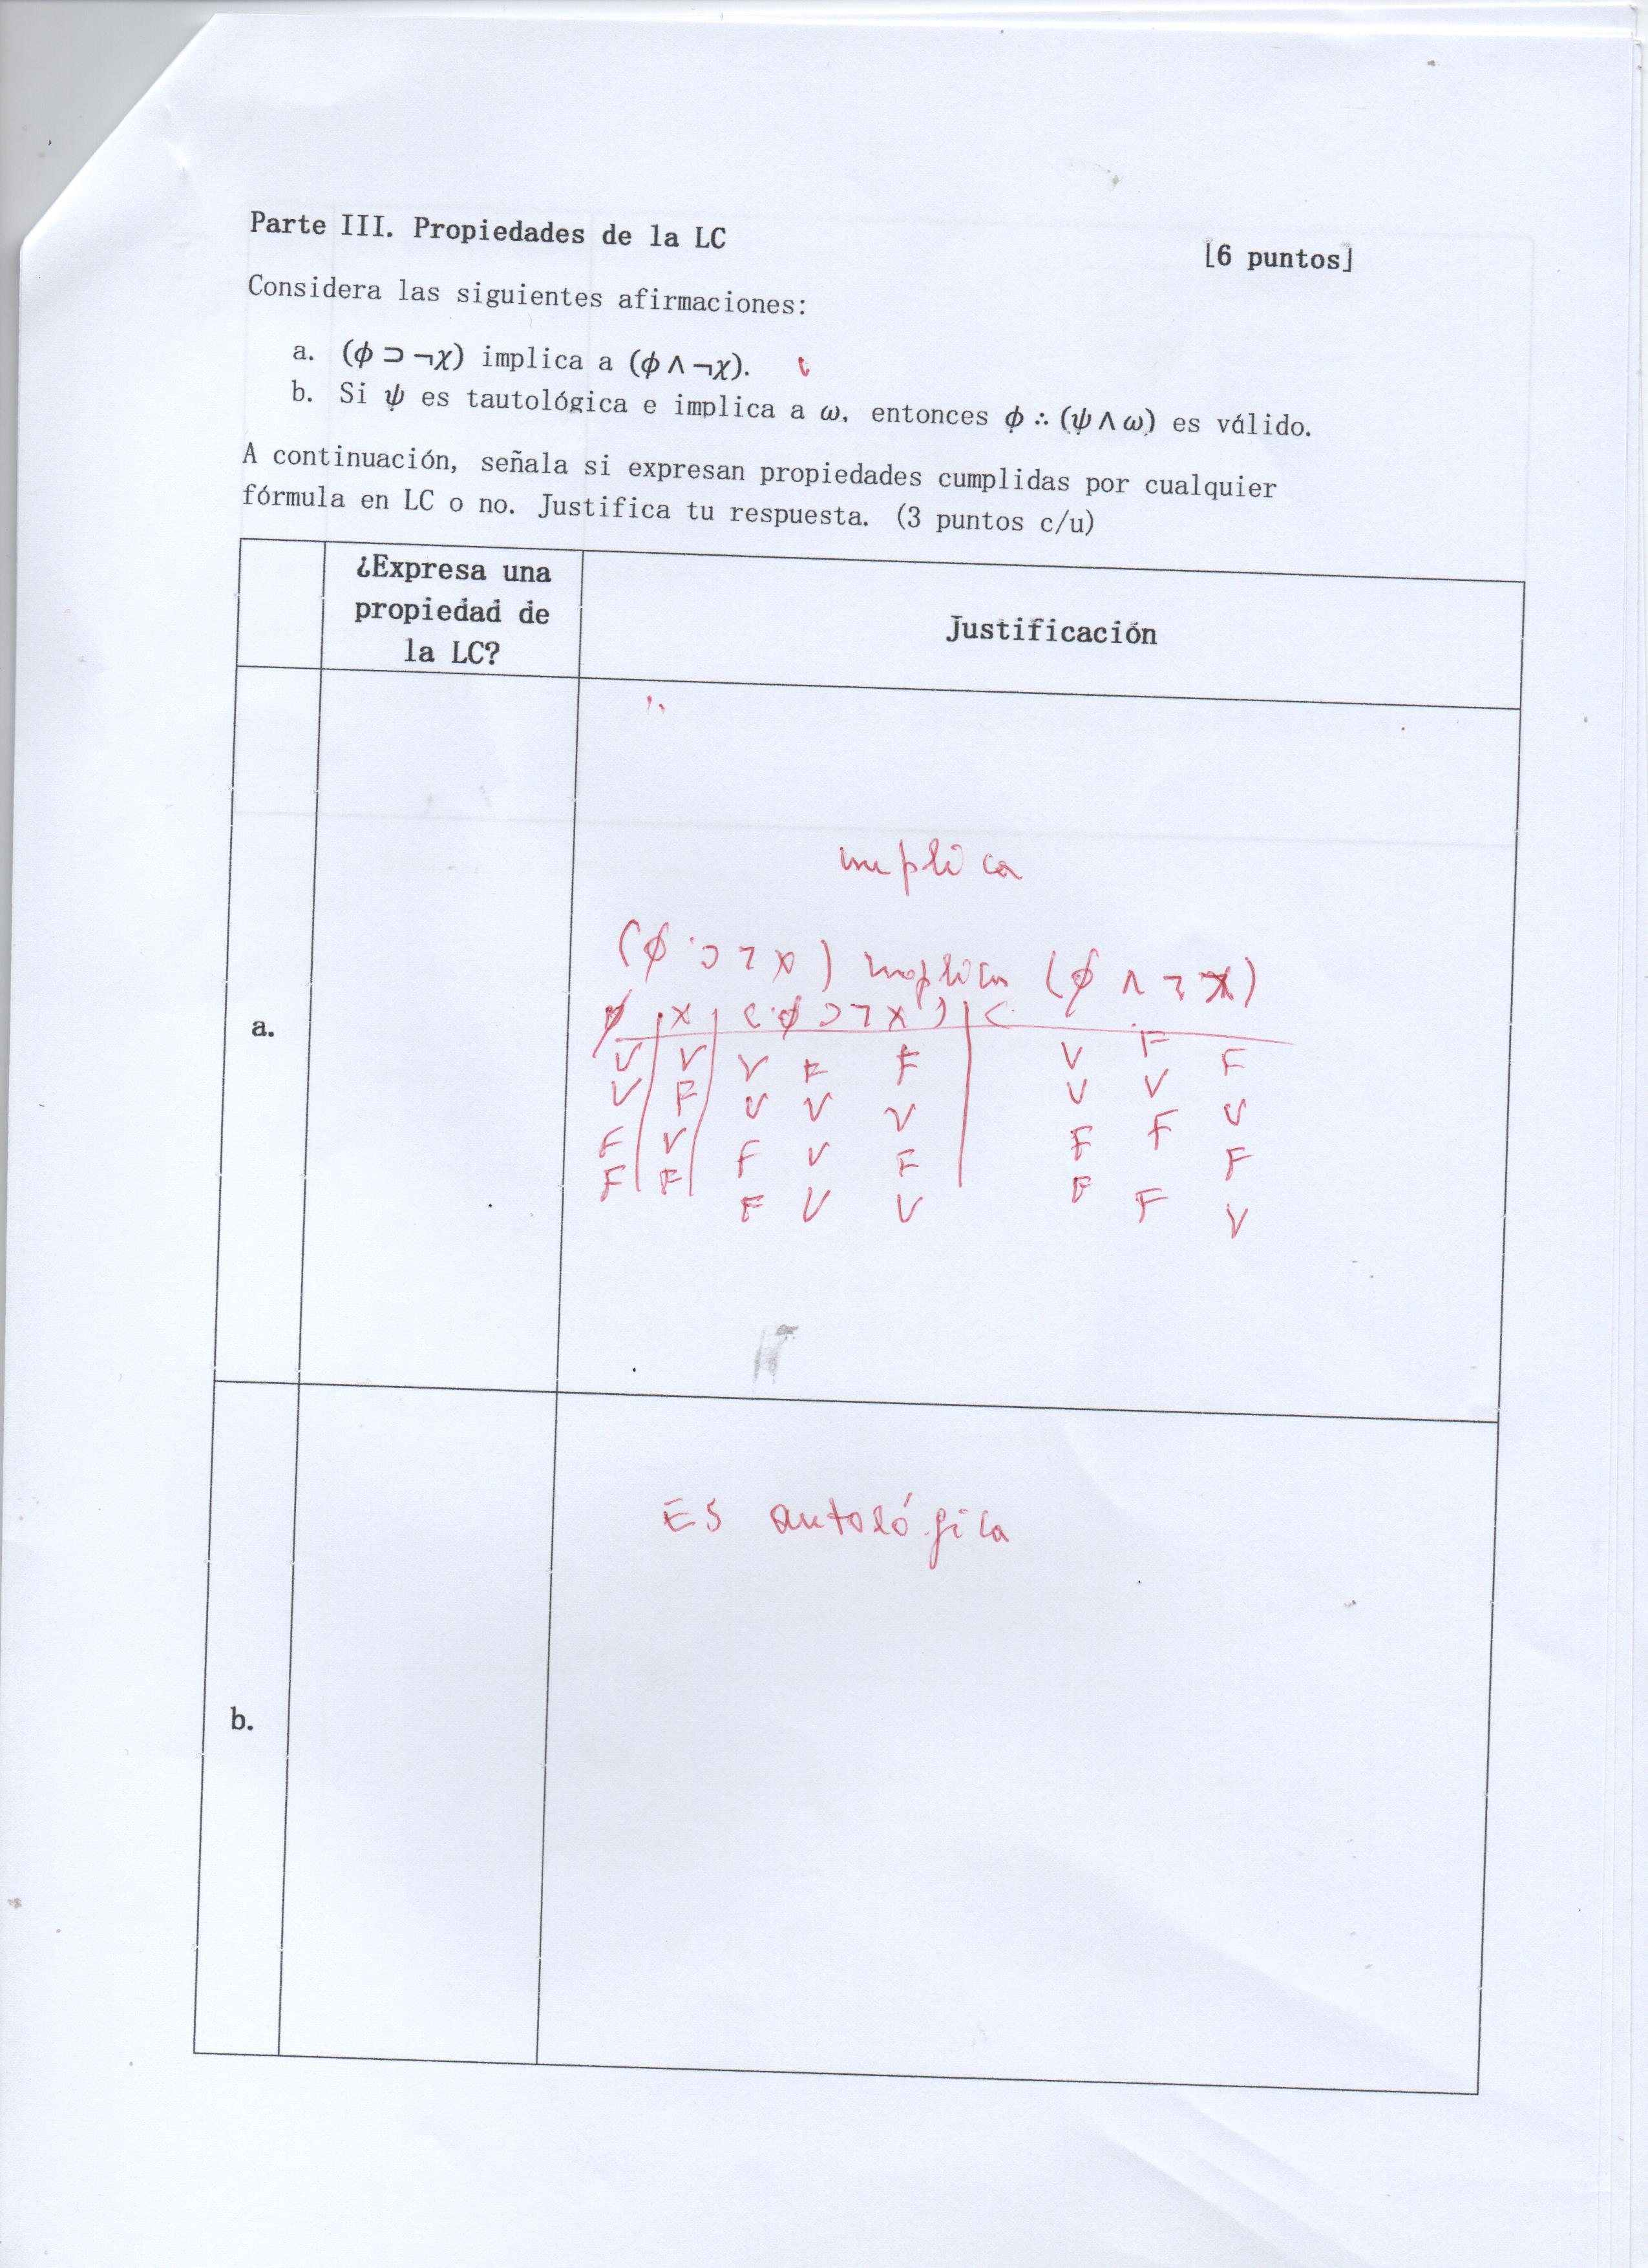 Parte III. Propiedades de la LC
[6 puntos]
Considera las siguientes afirmaciones:
a. (ϕ ⊃ ¬χ) implica a (ϕ ∧ ¬χ).
b. Si ψ es tautológica e implica a ω, entonces ϕ ∴ (ψ ∧ ω) es válido.
A continuación, señala si expresan propiedades cumplidas por cualquier
fórmula en LC o no. Justifica tu respuesta. (3 puntos c/u)
¿Expresa una
propiedad de
la LC?
Justificación
a.
implica
(ϕ ⊃ ¬χ) implica (ϕ ∧ ¬χ)
ϕ | χ | (ϕ ⊃ ¬χ) | (
V V V F F V F F
V F V V V V V V
F V F V F F F F
F F F V V F F V
b.
ES autológica